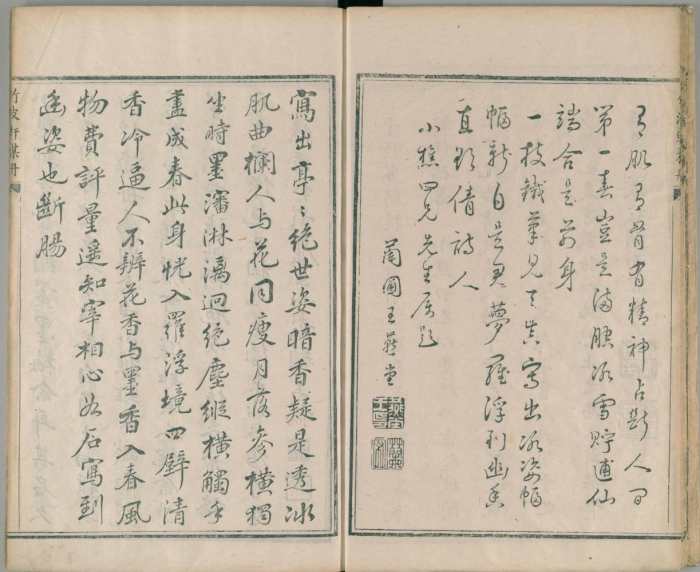 有肌有骨有精神占斷人間
第一春豈是滿腔冰雪貯逋仙
端合是前身
一枝鐵筆見天真寫出冰姿幅
幅新自是君夢羅浮到幽香
直倩詩人
小樵四兄先生屬題
蘭圃王堂
寫出亭〻絕世姿暗香疑是透冰
肌曲欄人与花同瘦月落參橫獨
坐時墨瀋淋漓迥絕塵縱橫觸手
盡成春此身恍入羅浮境四壁清
香冷逼人不辨花香与墨香入春風
物費評量遥知宰相心如石寫到
幽姿也斷腸
竹波軒梅冊